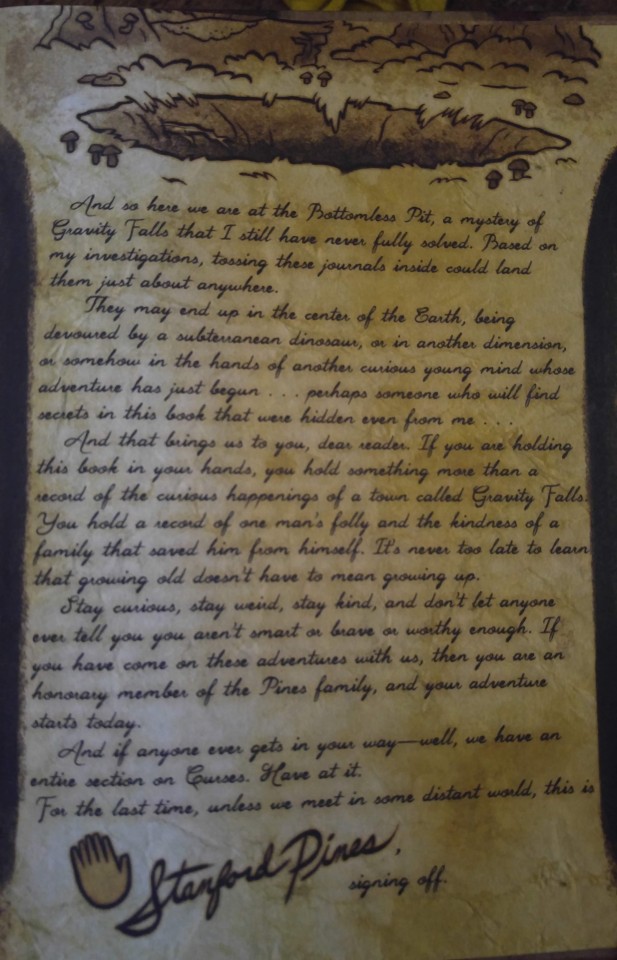 And so here we are at the Bottomless Pit, a mystery of
Gravity Falls that I still have never fully solved. Based on
my investigations, tossing these journals inside could land
them just about anywhere.
They may end up in the center of the Earth, being
devoured by a subterranean dinosaur, or in another dimension,
or somehow in the hands of another curious young mind whose
adventure has just begun . . . perhaps someone who will find
secrets in this book that were hidden even from me . . .
And that brings us to you, dear reader. If you are holding
this book in your hands, you hold something more than a
record of the curious happenings of a town called Gravity Falls.
You hold a record of one man's folly and the kindness of a
family that saved him from himself. It's never too late to learn
that growing old doesn't have to mean growing up.
Stay curious, stay weird, stay kind, and don't let anyone
ever tell you you aren't smart or brave or worthy enough. If
you have come on these adventures with us, then you are an
honorary member of the Pines family, and your adventure
starts today.
And if anyone ever gets in your way—well, we have an
entire section on Curses. Have at it.
For the last time, unless we meet in some distant world, this is
Stanford Pines,
signing off.